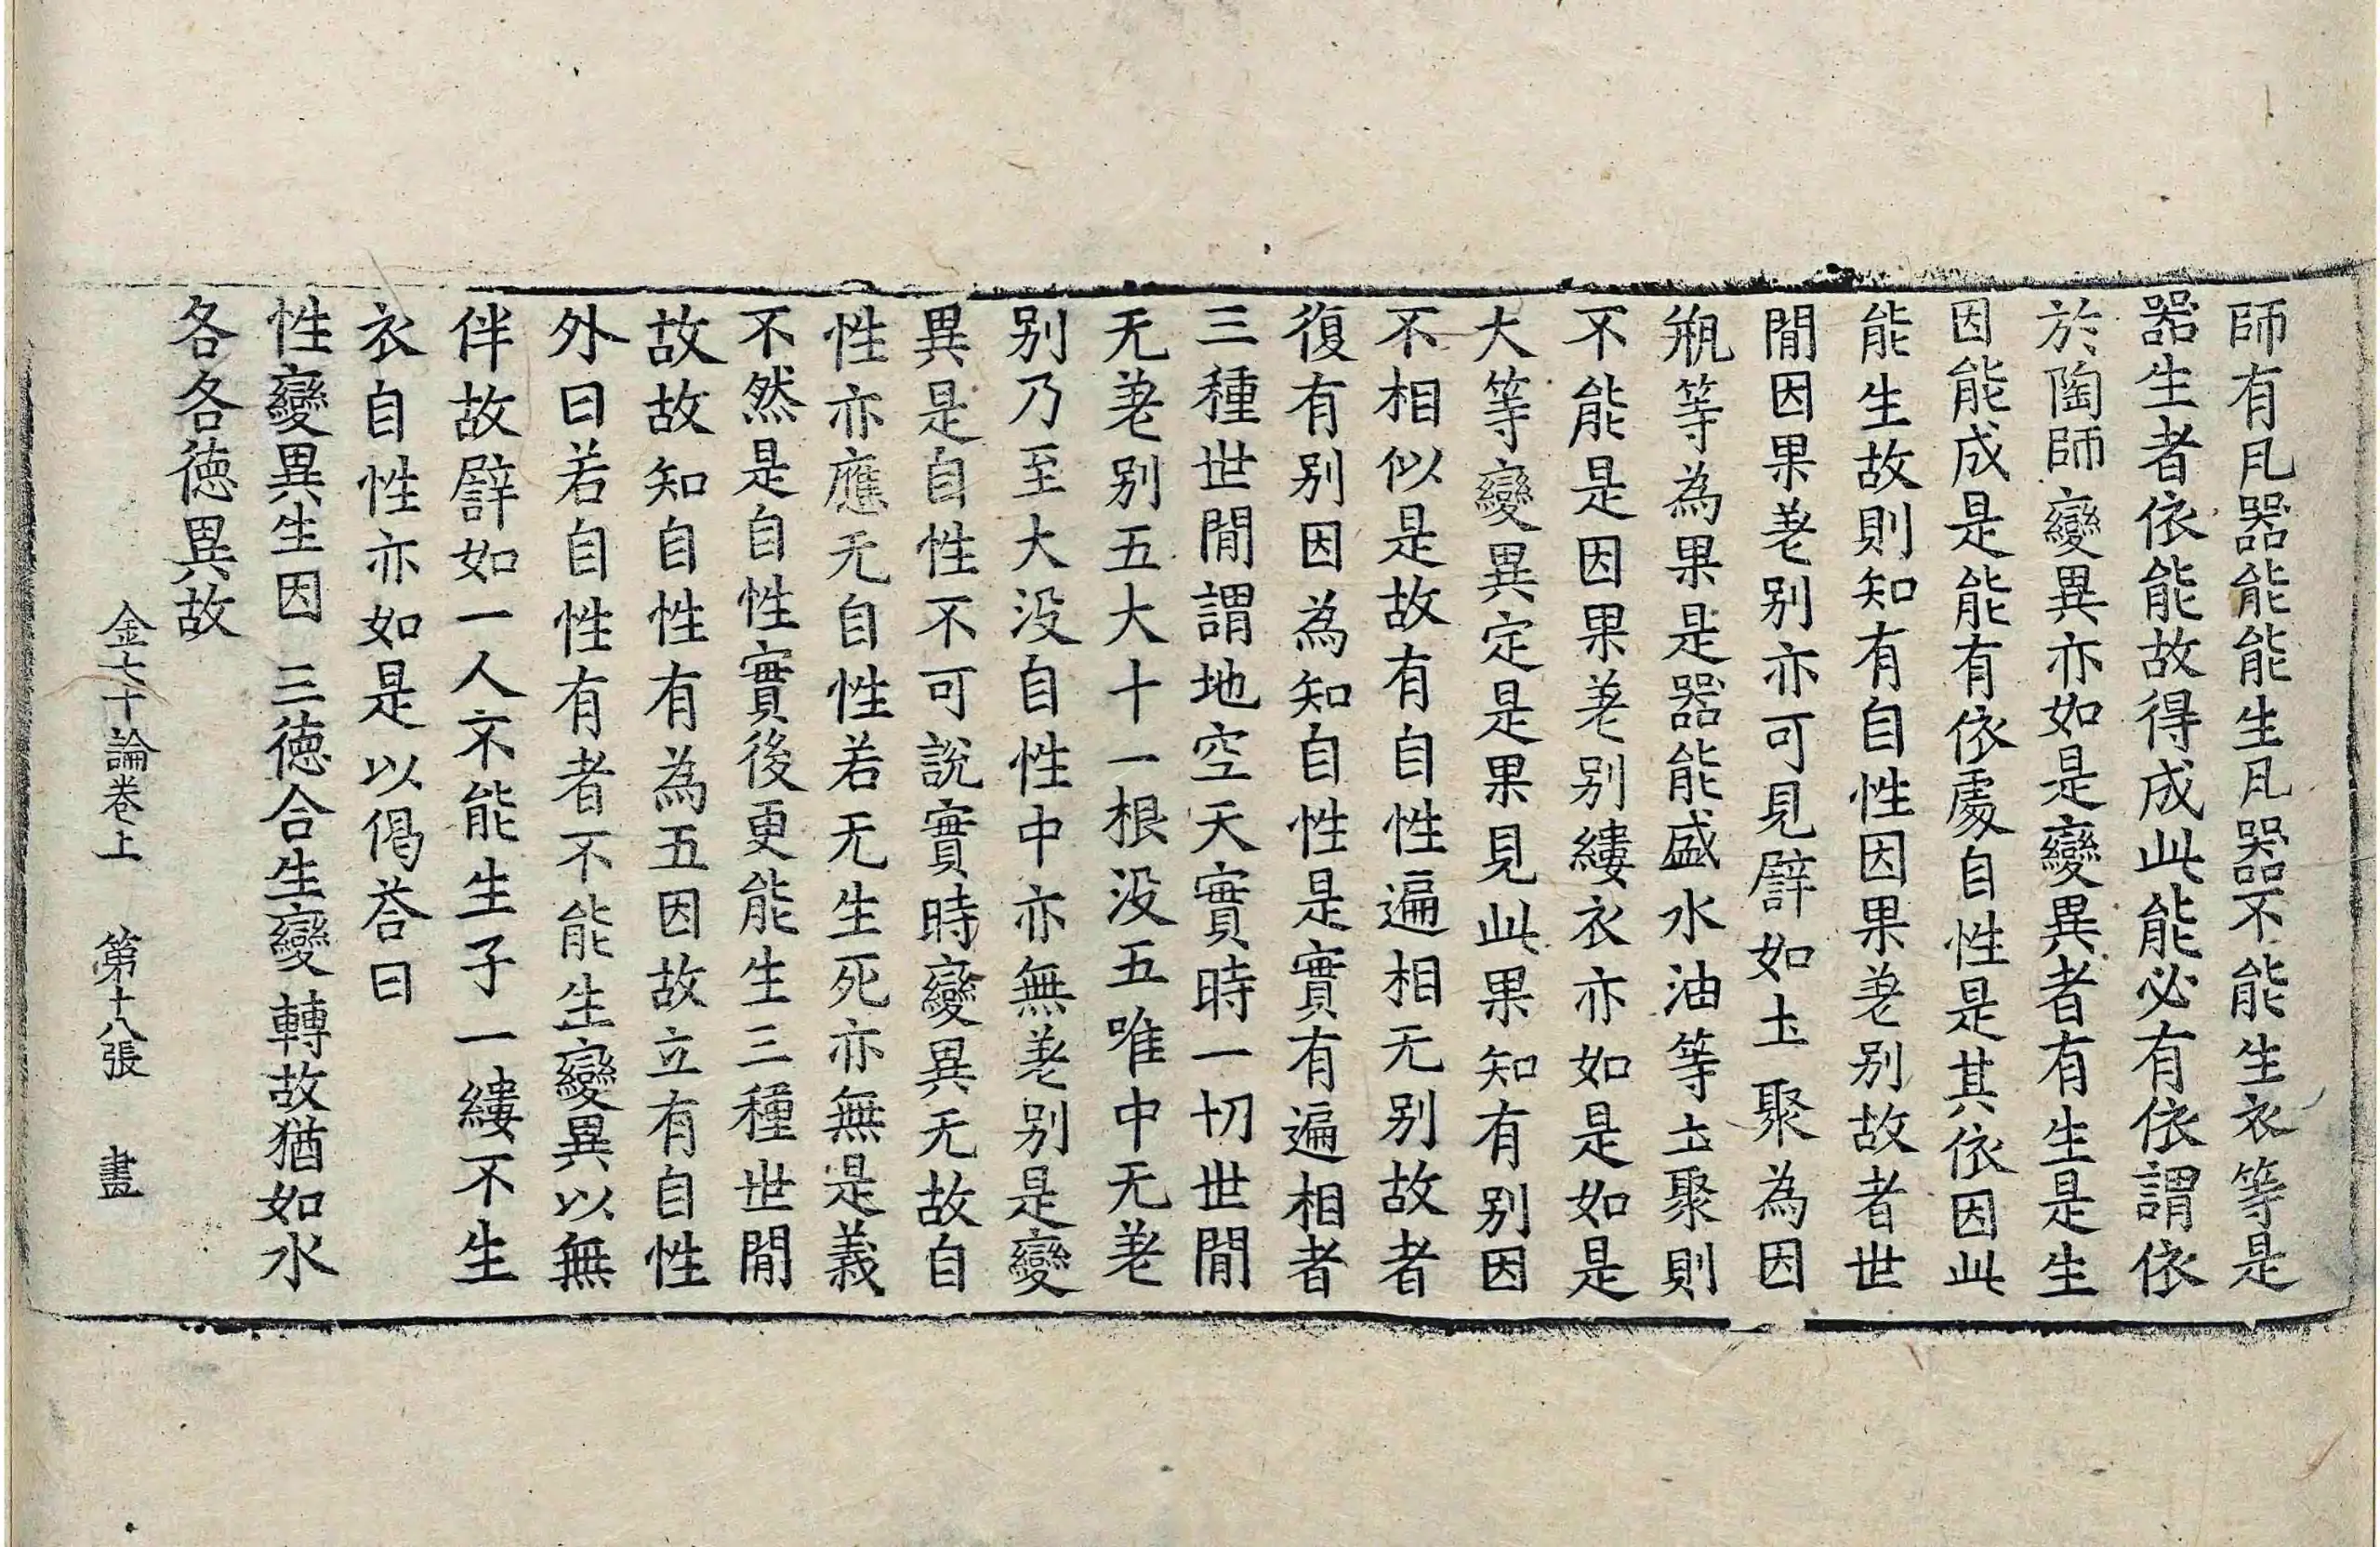 師有凡器能能生凡器不能生衣等是
器生者依能故得成此能必有依謂依
於陶師變異亦如是變異者有生是生
因能成是能有依處自性是其依因此
能生故則知有自性因果差别故者世
閒因果差别亦可見譬如土聚為因
瓶等為果是器能盛水油等土聚則
不能是因果差别縷衣亦如是如是
大等變異定是果見此果知有别因
不相似是故有自性遍相无别故者
復有别因為知自性是實有遍相者
三種世閒謂地空天實時一切世閒
无差别五大十一根没五唯中无差
别乃至大没自性中亦無差别是變
異是自性不可說實時變異无故自
性亦應无自性若无生死亦無是義
不然是自性實後更能生三種世閒
故故知自性有為五因故立有自性
外曰若自性有者不能生變異以無
伴故譬如一人不能生子一縷不生
衣自性亦如是以偈荅曰
性變異生因　三徳合生變轉故猶如水
各各徳異故
金七十論卷上　第十八張　畫